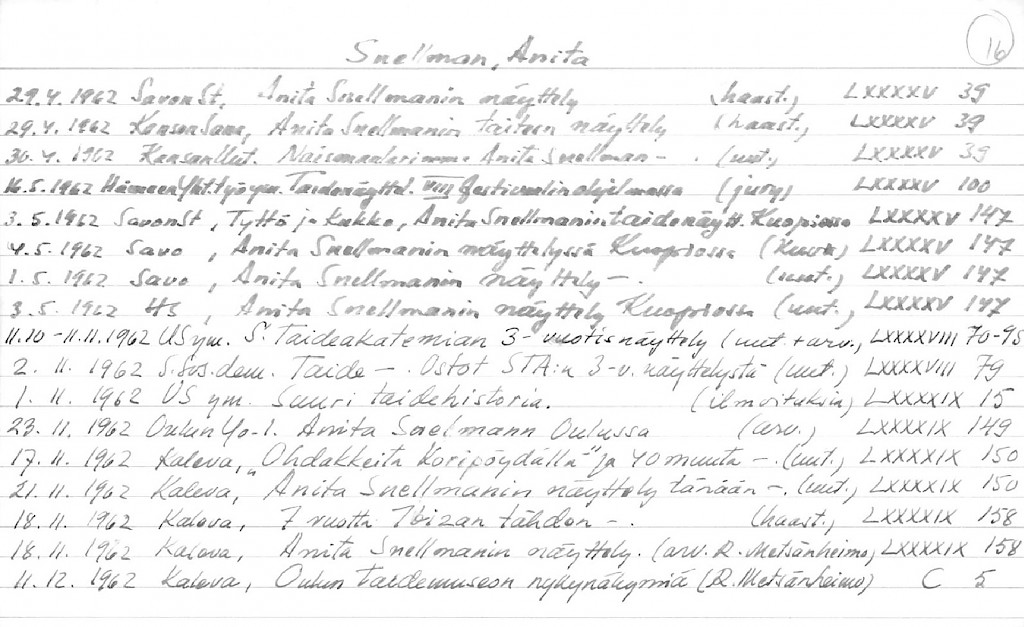 16
Snellman, Anita
29.4.1962 SavonSt, Anita Snellmanin näyttely (haast.) LXXXXV 39
29.4.1962 KansanSana, Anita Snellmanin taiteen näyttely (haast.) LXXXXV 39
30.4.1962 KansanUut. Naismaalarimme Anita Snellman - . (uut.) LXXXXV 39
16.5.1962 HämeenYht.työ ym. Taidenäyttel. VIII festivaalin ohjelmassa (jury) LXXXXV 100
3.5.1962 SavonSt, Tyttö ja Kukko, Anita Snellmanin taidenäytt. Kuopiossa LXXXXV 147
4.5.1962 Savo, Anita Snellmanin näyttelyssä Kuopiossa (kuva) LXXXXV 147
1.5.1962 Savo, Anita Snellmanin näyttely - . (uut.) LXXXXV 147
3.5.1962 HS, Anita Snellmanin näyttely Kuopiossa (uut.) LXXXXV 147
11.10-11.11.1962 US ym. S. Taideakatemian 3-vuotisnäyttely (uut + arv., LXXXXVIII 70-95
2.11.1962 S.Sos.dem. Taide - . Ostot STA:n 3-v. näyttelystä (uut.) LXXXXVIII 79
1.11.1962 US ym. Suuri taidehistoria. (ilmoituksia) LXXXXIX 15
23.11.1962 Oulun Yo-l. Anita Snelmann Oulussa (arv.) LXXXXIX 149
17.11.1962 Kaleva, "Ohdakkeita Koripöydällä" ja 40 muuta - . (uut.) LXXXXIX 150
21.11.1962 Kaleva, Anita Snellmanin näyttely tänään - . (uut.) LXXXXIX 150
18.11.1962 Kaleva, 7 vuotta Ibizan tähden - . (haast.) LXXXXIX 158
18.11.1962 Kaleva, Anita Snellmanin näyttely. (arv. R. Metsänheimo) LXXXXIX 158
11.12.1962 Kaleva, Oulun taidemuseon nykynäkymiä (R. Metsänheimo) C 5